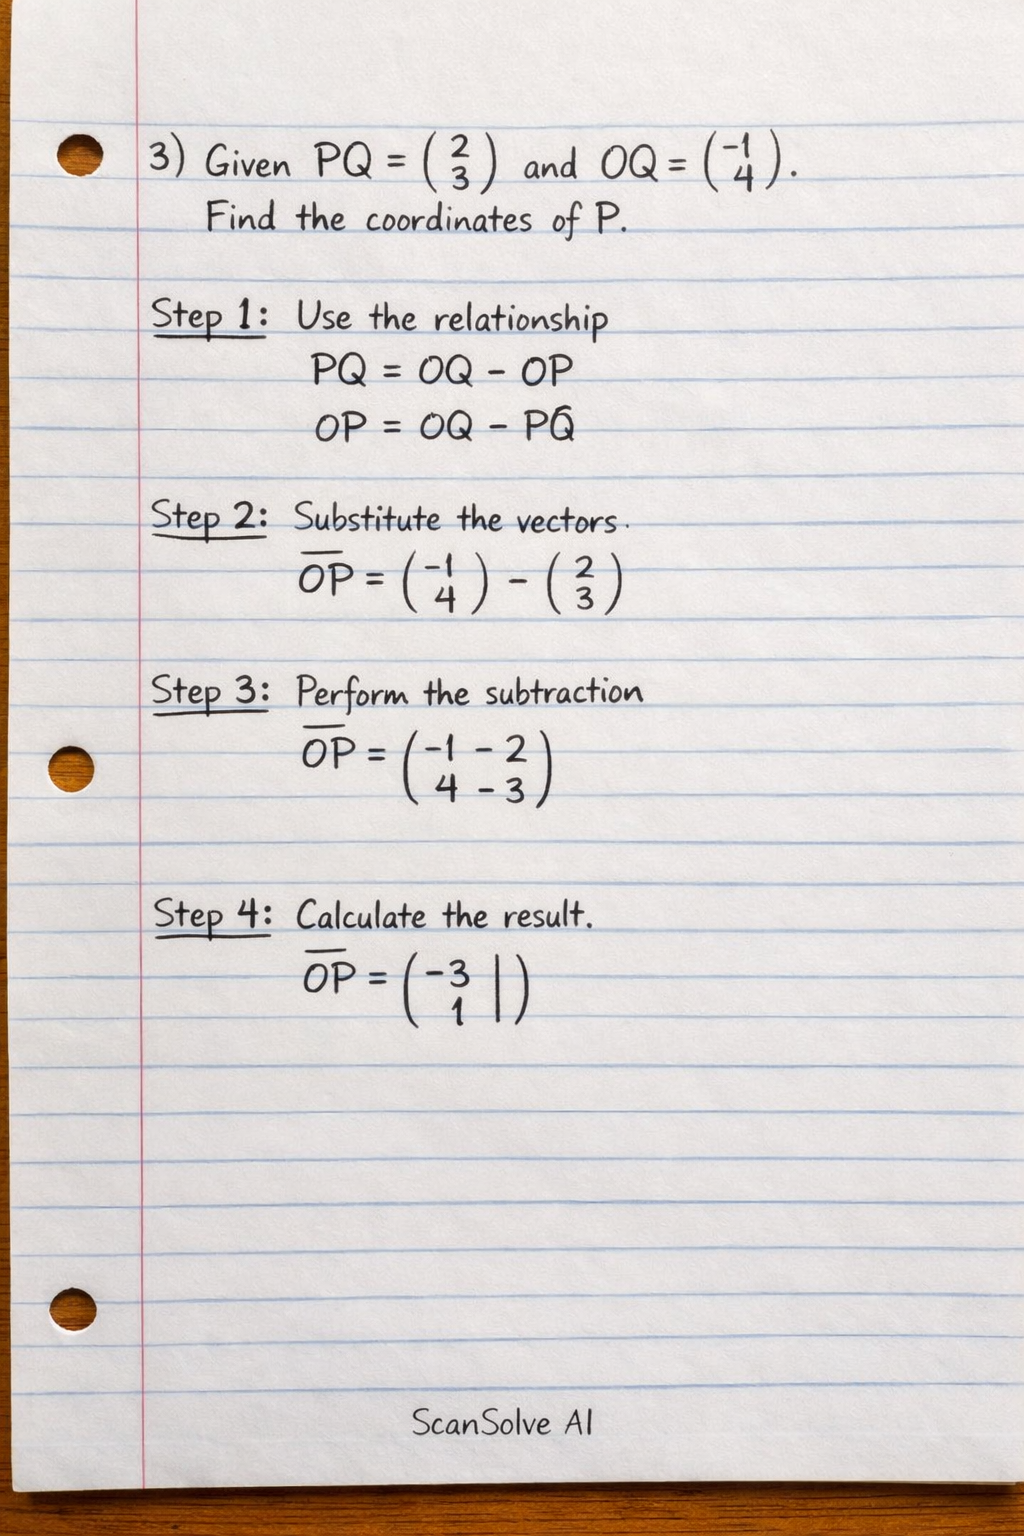 3) Given PQ = (2 3) and OQ = (-1 4).
Find the coordinates of P.
Step 1: Use the relationship
PQ = OQ - OP
OP = OQ - PQ
Step 2: Substitute the vectors.
OP = (-1 4) - (2 3)
Step 3: Perform the subtraction
OP = (-1 - 2 4 - 3)
Step 4: Calculate the result.
OP = (-3 1 |)
ScanSolve AI